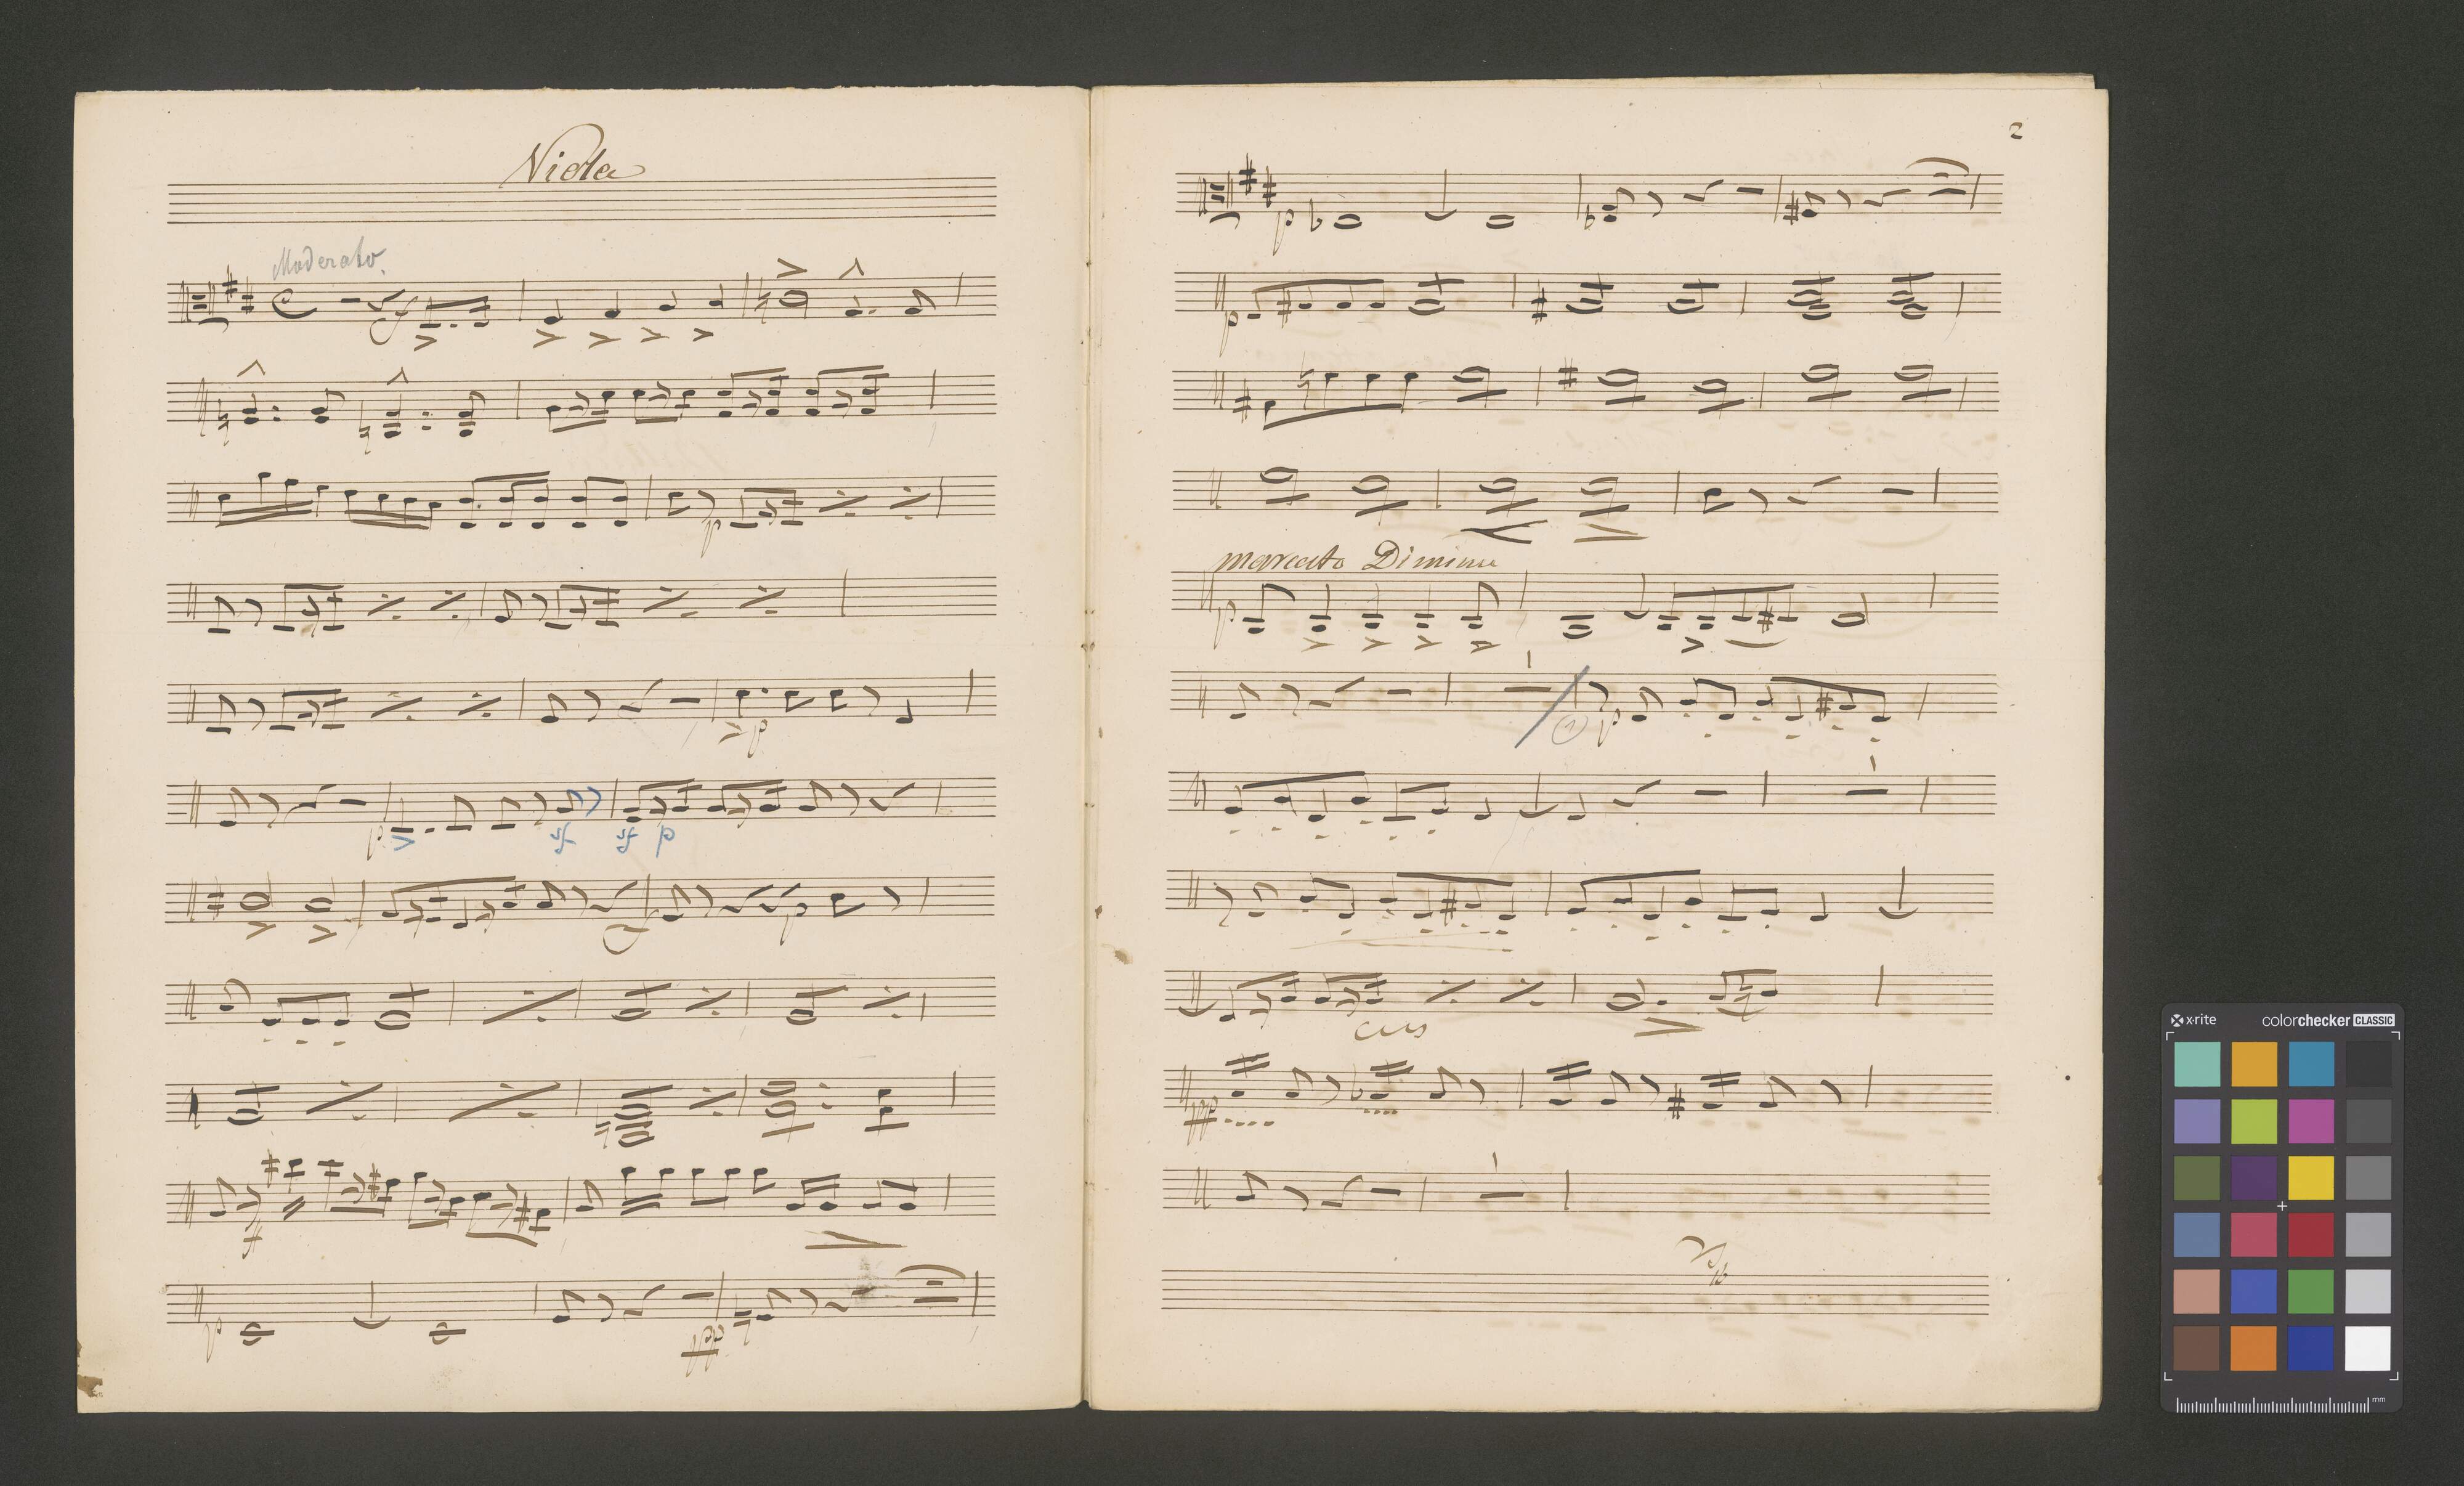 Viola
Moderato.
f
p
p
p
sf sf p
f p
f
p
pp
2
p
p
marcato Diminu
p
p
cres
pp
x-rite colorchecker CLASSIC
mm